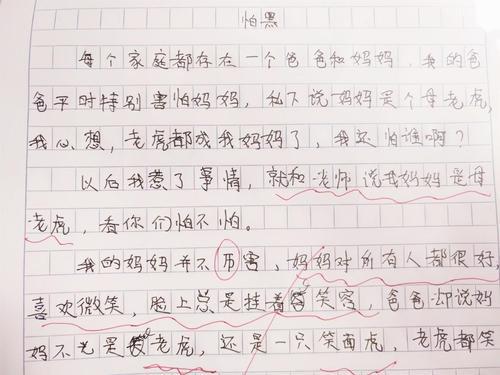 怕黑
每个家庭都存在一个爸爸和妈妈，我的爸
爸平时特别害怕妈妈，私下说妈妈是个母老虎，
我心想，老虎都成我妈妈了，我还怕谁啊？
以后我惹了事情，就和老师说我妈妈是母
老虎，看你们怕不怕。
我的妈妈并不历害，妈妈对所有人都很好，
喜欢微笑，脸上总是挂着笑容，爸爸却说妈
妈不光是老虎，还是一只笑面虎，老虎都笑